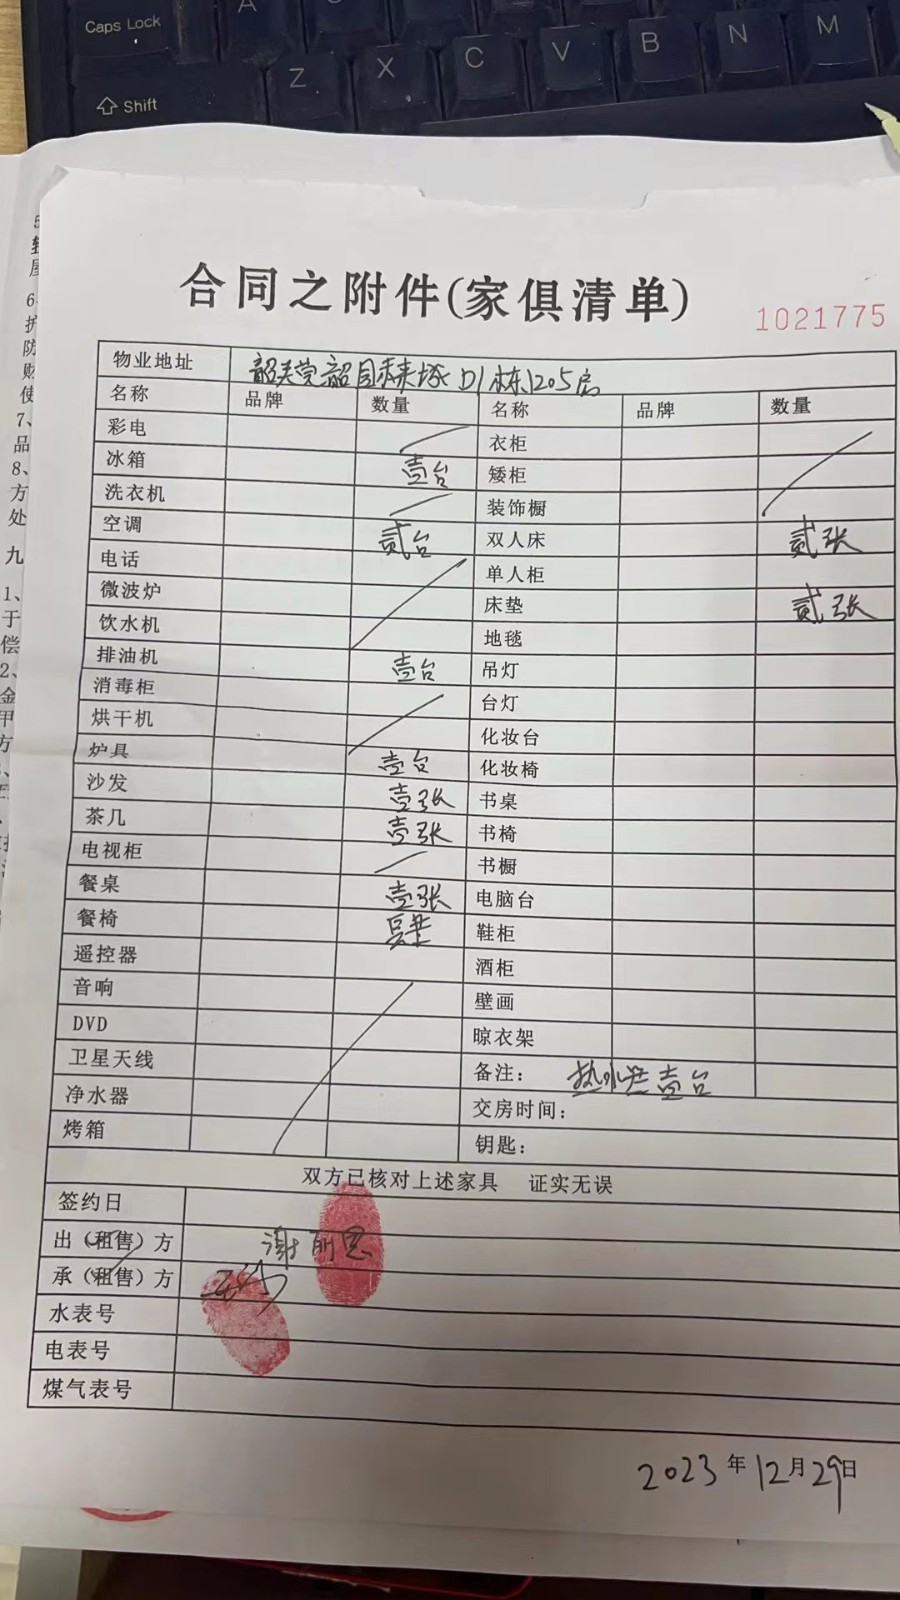 Caps Lock
A
Z X C V B N M
Shift
合同之附件(家俱清单)
1021775
物业地址 D1栋1205房
名称 品牌 数量 名称 品牌 数量
彩电 衣柜
冰箱 壹台 矮柜
洗衣机 装饰橱
空调 贰台 双人床 贰张
电话 单人柜
微波炉 床垫 贰张
饮水机 地毯
排油机 壹台 吊灯
消毒柜 台灯
烘干机 化妆台
炉具 壹台 化妆椅
沙发 壹张 书桌
茶几 壹张 书椅
电视柜 书橱
餐桌 壹张 电脑台
餐椅 肆 鞋柜
遥控器 酒柜
音响 壁画
DVD 晾衣架
卫星天线 备注: 热水器壹台
净水器 交房时间:
烤箱 钥匙:
双方已核对上述家具 证实无误
签约日
出(租售)方 谢丽思
承(租售)方
水表号
电表号
煤气表号
2023年12月29日